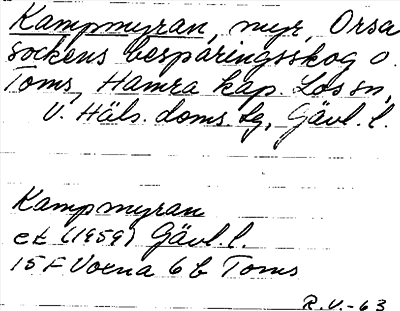 Kampmyran, myr, Orsa
sockens besparingsskog o.
Toms, Hamra kap. Los sn,
V. Häls. doms. sg, Gävl. l.
Kampmyran
ek (1959) Gävl. l.
15 F Voxna 6 b Toms
R.V.-63